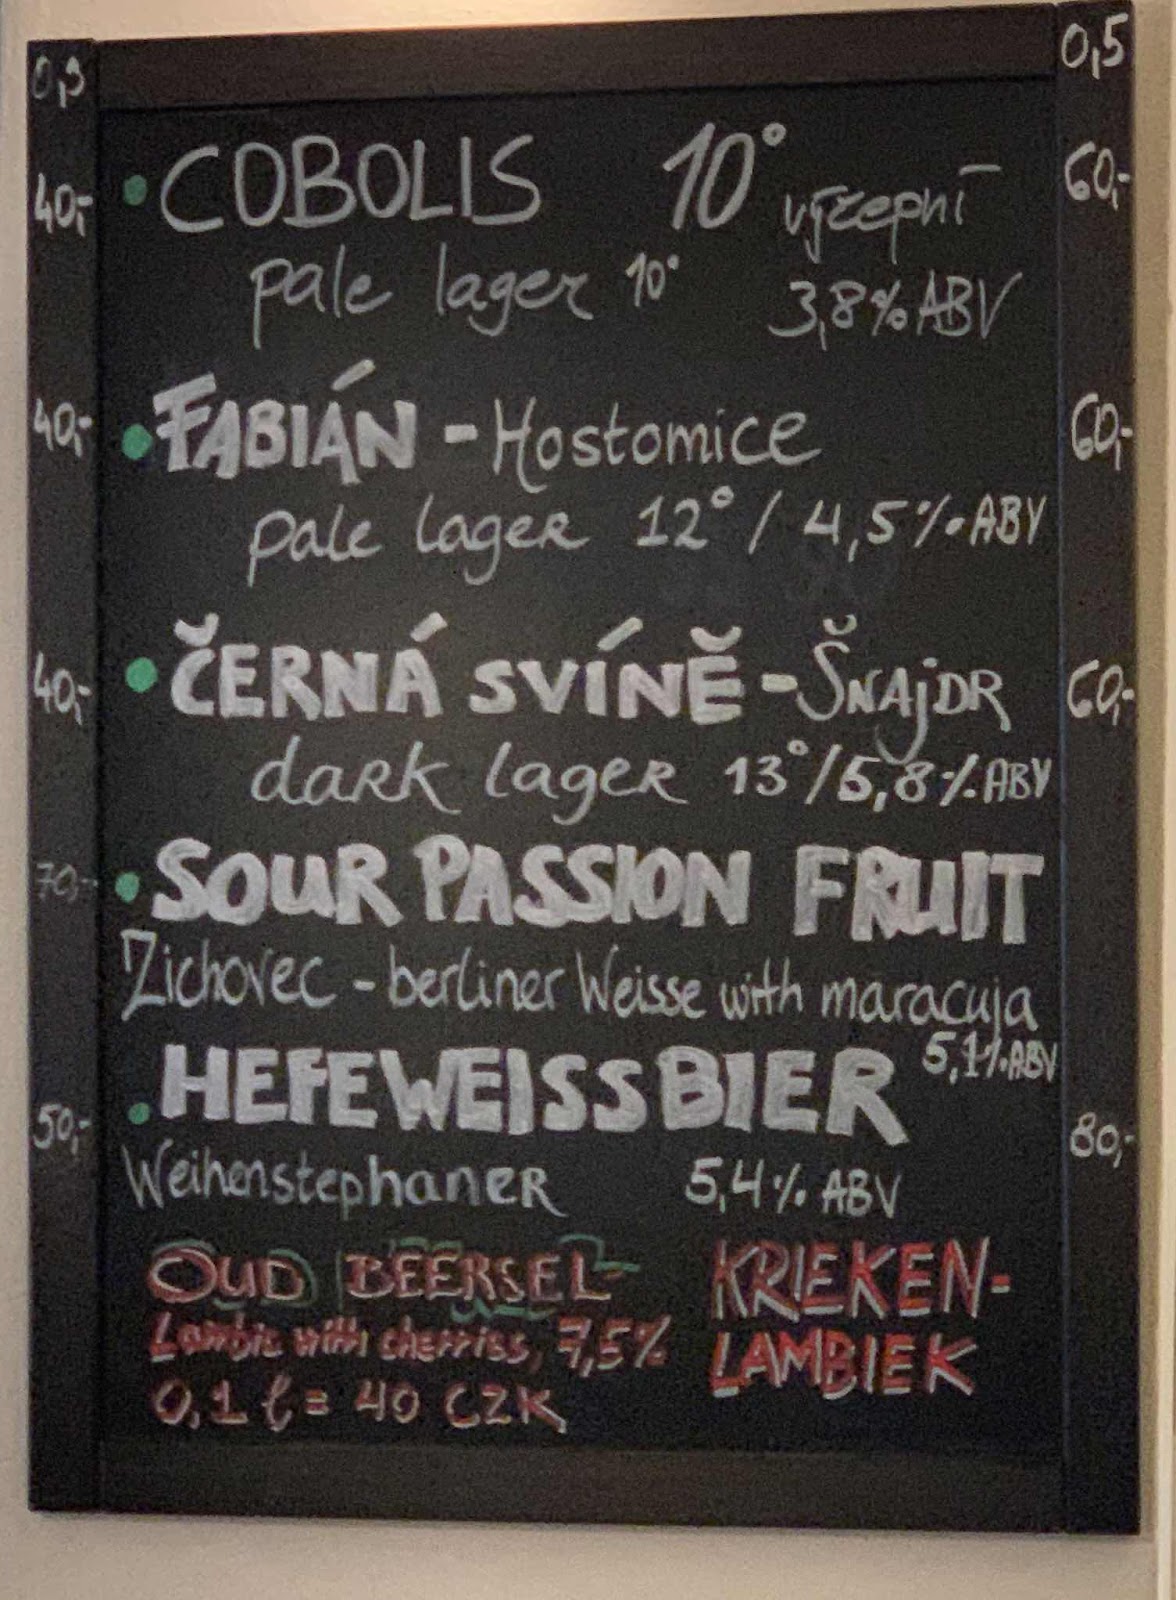 0,3 0,5
40,- COBOLIS 10° výčepní 60,-
pale lager 10° 3,8% ABV
40,- FABIÁN - Hostomice 60,-
pale lager 12° / 4,5% ABV
40,- ČERNÁ SVÍNĚ - ŠNAJDR 60,-
dark lager 13°/5,8% ABV
70,- SOUR PASSION FRUIT
Zichovec - berliner Weisse with maracuja
5,1% ABV
50,- HEFEWEISSBIER 80,-
Weihenstephaner 5,4% ABV
OUD BEERSEL- KRIEKEN-
Lambic with cherries, 7,5% LAMBIEK
0,1 l = 40 CZK